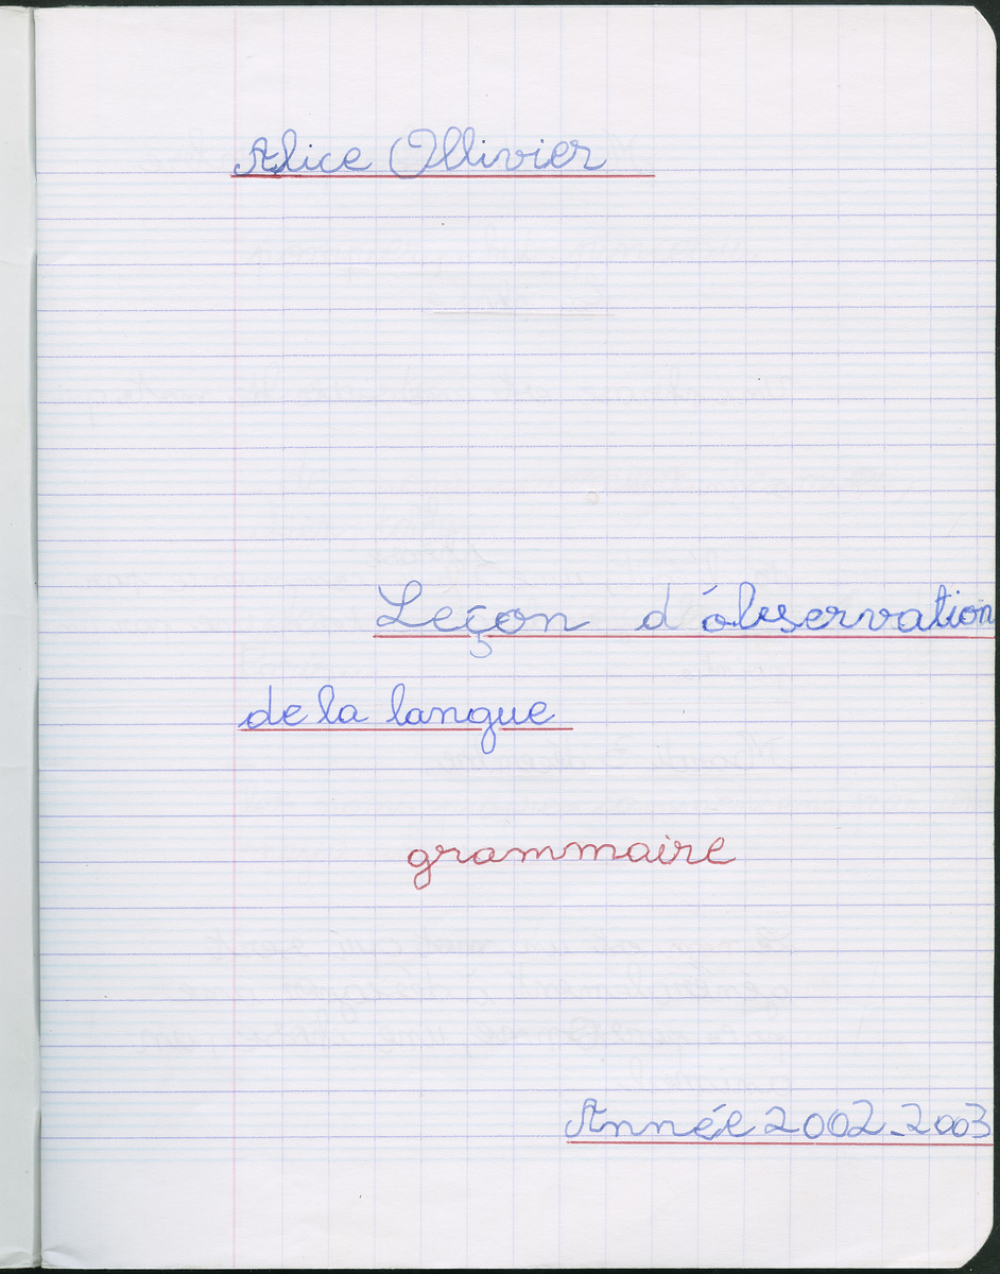 Alice Ollivier
Leçon d'observation
de la langue
grammaire
Année 2002-2003